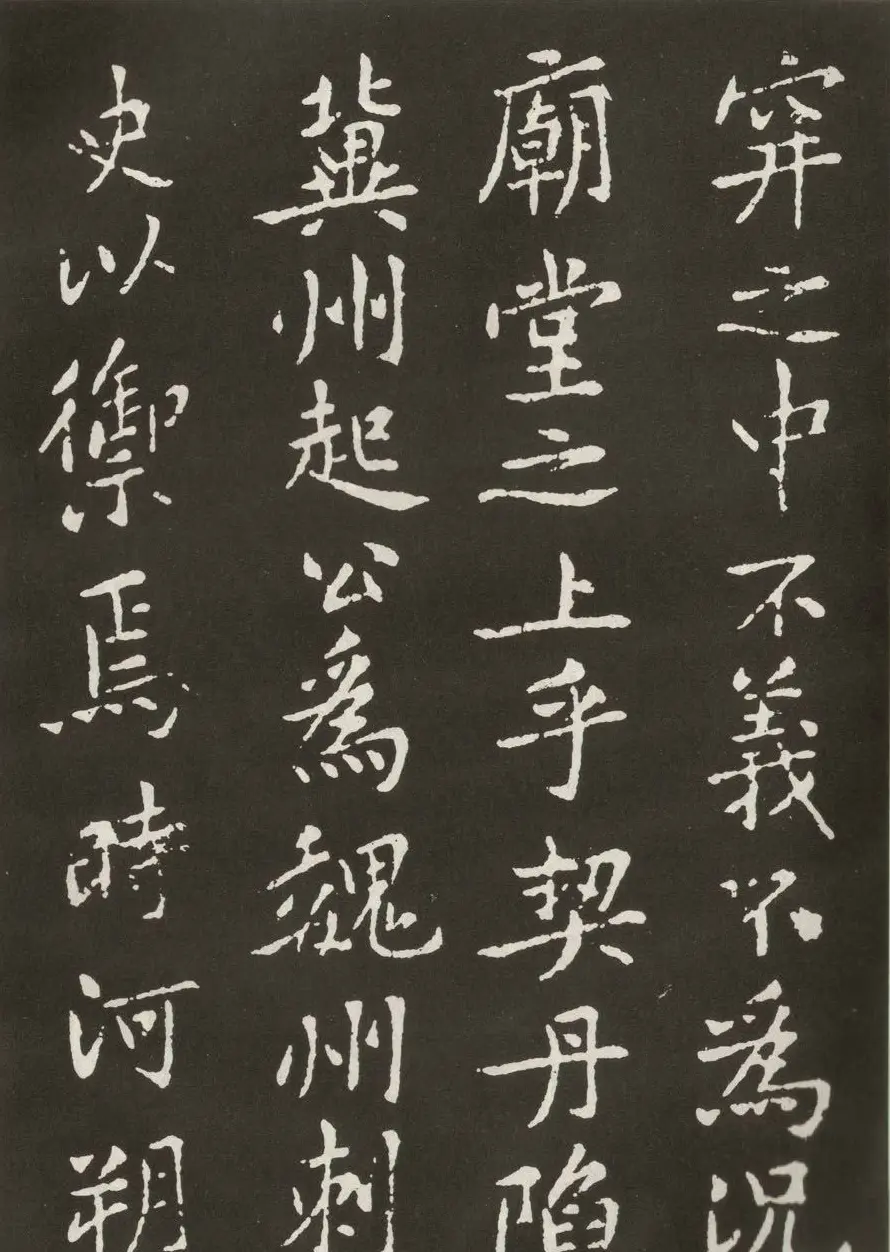 穽之中不義不為況
廟堂之上乎契丹陷
冀州起公為魏州刺
史以禦焉時河朔